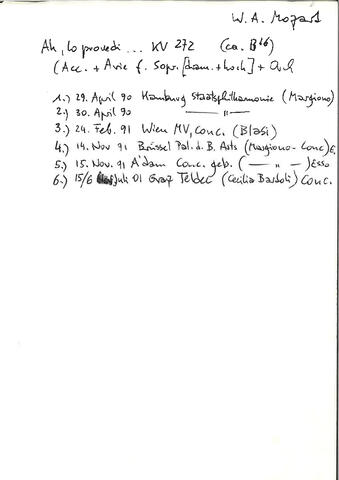 W. A. Mozart
Ah, lo previdi... KV 272 (ca. B¹⁶)
(Acc. + Arie f. Sopr. [dram. + hoch] + Orch
1.) 29. April 90 Hamburg Staatsphilharmonie (Margiono)
2.) 30. April 90 — " —
3.) 24. Feb. 91 Wien MV, Conc. (Blasi)
4.) 14. Nov 91 Brüssel Pal. d. B. Arts (Margiono - Conc) E.
5.) 15. Nov. 91 A'dam Conc. geb. ( — " — ) Esso
6.) 15/6 Juli 01 Graz Teldec (Cecilia Bartoli) Conc.